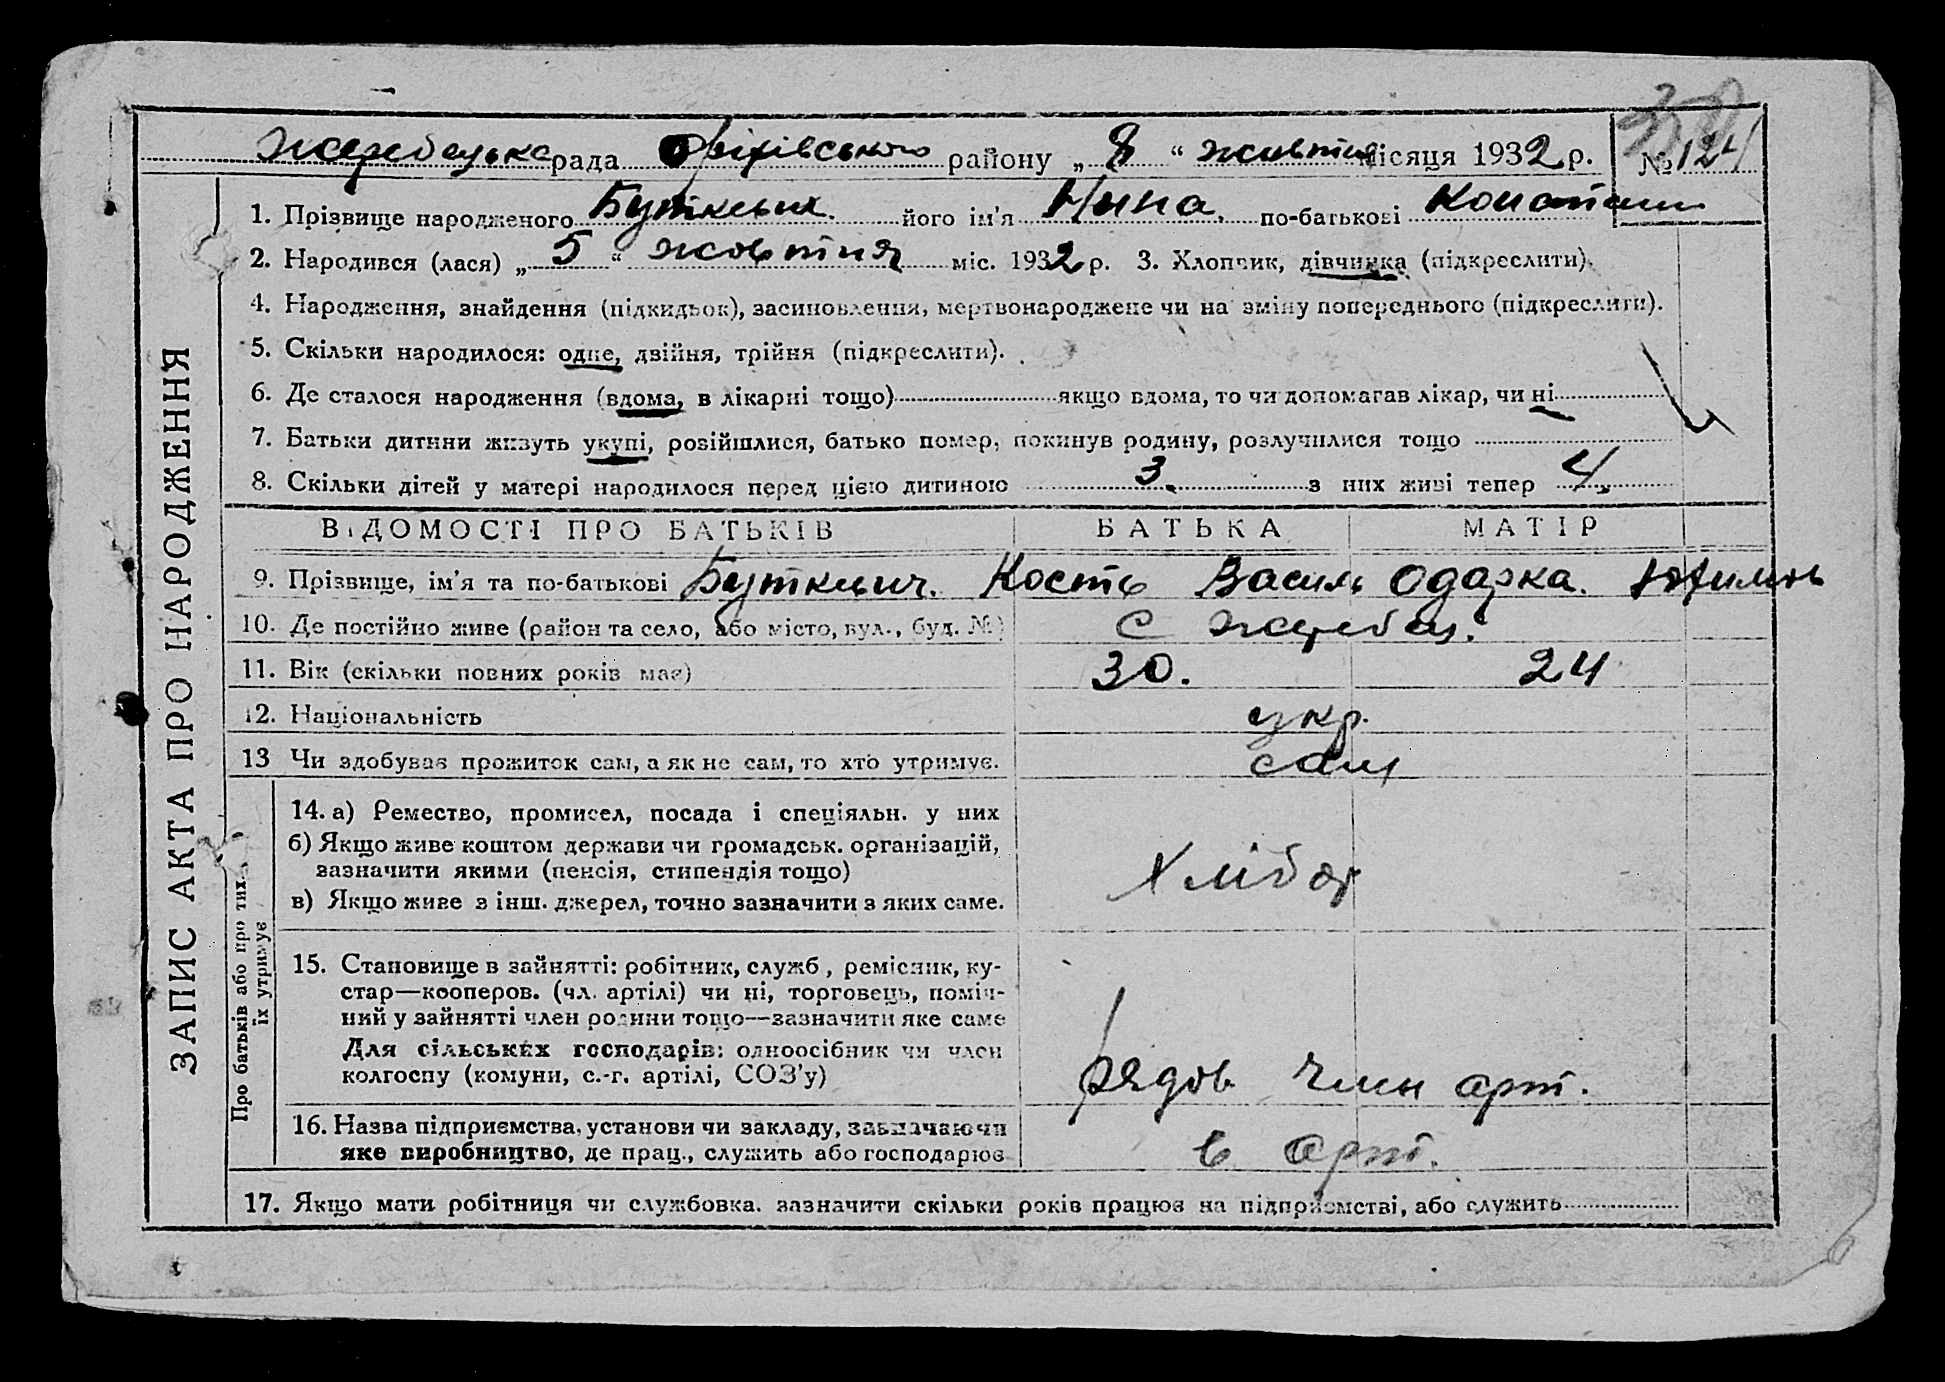 Жеребецька рада Оріхівського району „ 8 “ жовтня місяця 1932 р. № 124
ЗАПИС АКТА ПРО НАРОДЖЕННЯ
1. Прізвище народженого Буткевич. його ім'я Нина. по-батькові Констан
2. Народився (лася) „ 5 “ жовтня міс. 1932 р. 3. Хлопчик, дівчинка (підкреслити).
4. Народження, знайдення (підкидьок), засиновлення, мертвонароджене чи на зміну попереднього (підкреслити).
5. Скільки народилося: одне, двійня, трійня (підкреслити).
6. Де сталося народження (вдома, в лікарні тощо) якщо вдома, то чи допомагав лікар, чи ні
7. Батьки дитини живуть укупі, розійшлися, батько помер, покинув родину, розлучилися тощо
8. Скільки дітей у матері народилося перед цією дитиною 3. з них живі тепер 4.
ВІДОМОСТІ ПРО БАТЬКІВ БАТЬКА МАТІР
9. Прізвище, ім'я та по-батькові Буткевич. Кость Василь Одарка. Юхимов
10. Де постійно живе (район та село, або місто, вул., буд. №) С Жеребец.
11. Вік (скільки повних років має) 30. 24
12. Національність укр.
13 Чи здобуває прожиток сам, а як не сам, то хто утримує. сам
Про батьків або про тих, їх утримує
14. а) Ремество, промисел, посада і спеціяльн. у них
б) Якщо живе коштом держави чи громадськ. організацій,
зазначити якими (пенсія, стипендія тощо)
Хлібор
в) Якщо живе з інш. джерел, точно зазначити з яких саме.
15. Становище в зайнятті: робітник, служб, ремісник, ку-
стар—кооперов. (чл. артілі) чи ні, торговець, поміч-
ний у зайнятті член родини тощо—зазначити яке саме
Для сільських господарів: одноосібник чи член
колгоспу (комуни, с.-г. артілі, СОЗ'у) рядов член арт.
16. Назва підприємства, установи чи закладу, зазначаючи
яке виробництво, де прац., служить або господарює в арт.
17. Якщо мати робітниця чи службовка. зазначити скільки років працює на підприємстві, або служить